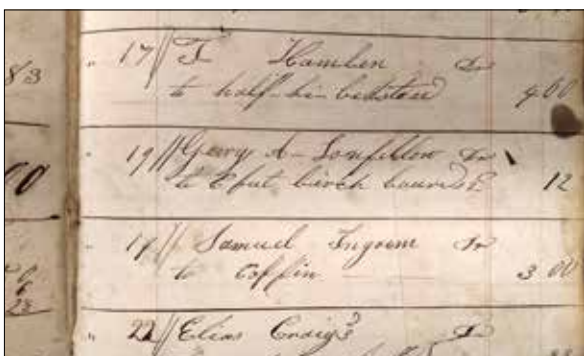 83
" 17 T Hamlen Dr
to half-hi-bedstead 4 00
00
" 19 George A- Longfellow Dr
to 8 feet birch boards 12
" 19 Samuel Ingrom Dr
to Coffin 3 00
6
23
" 22 Elias Craig's Dr